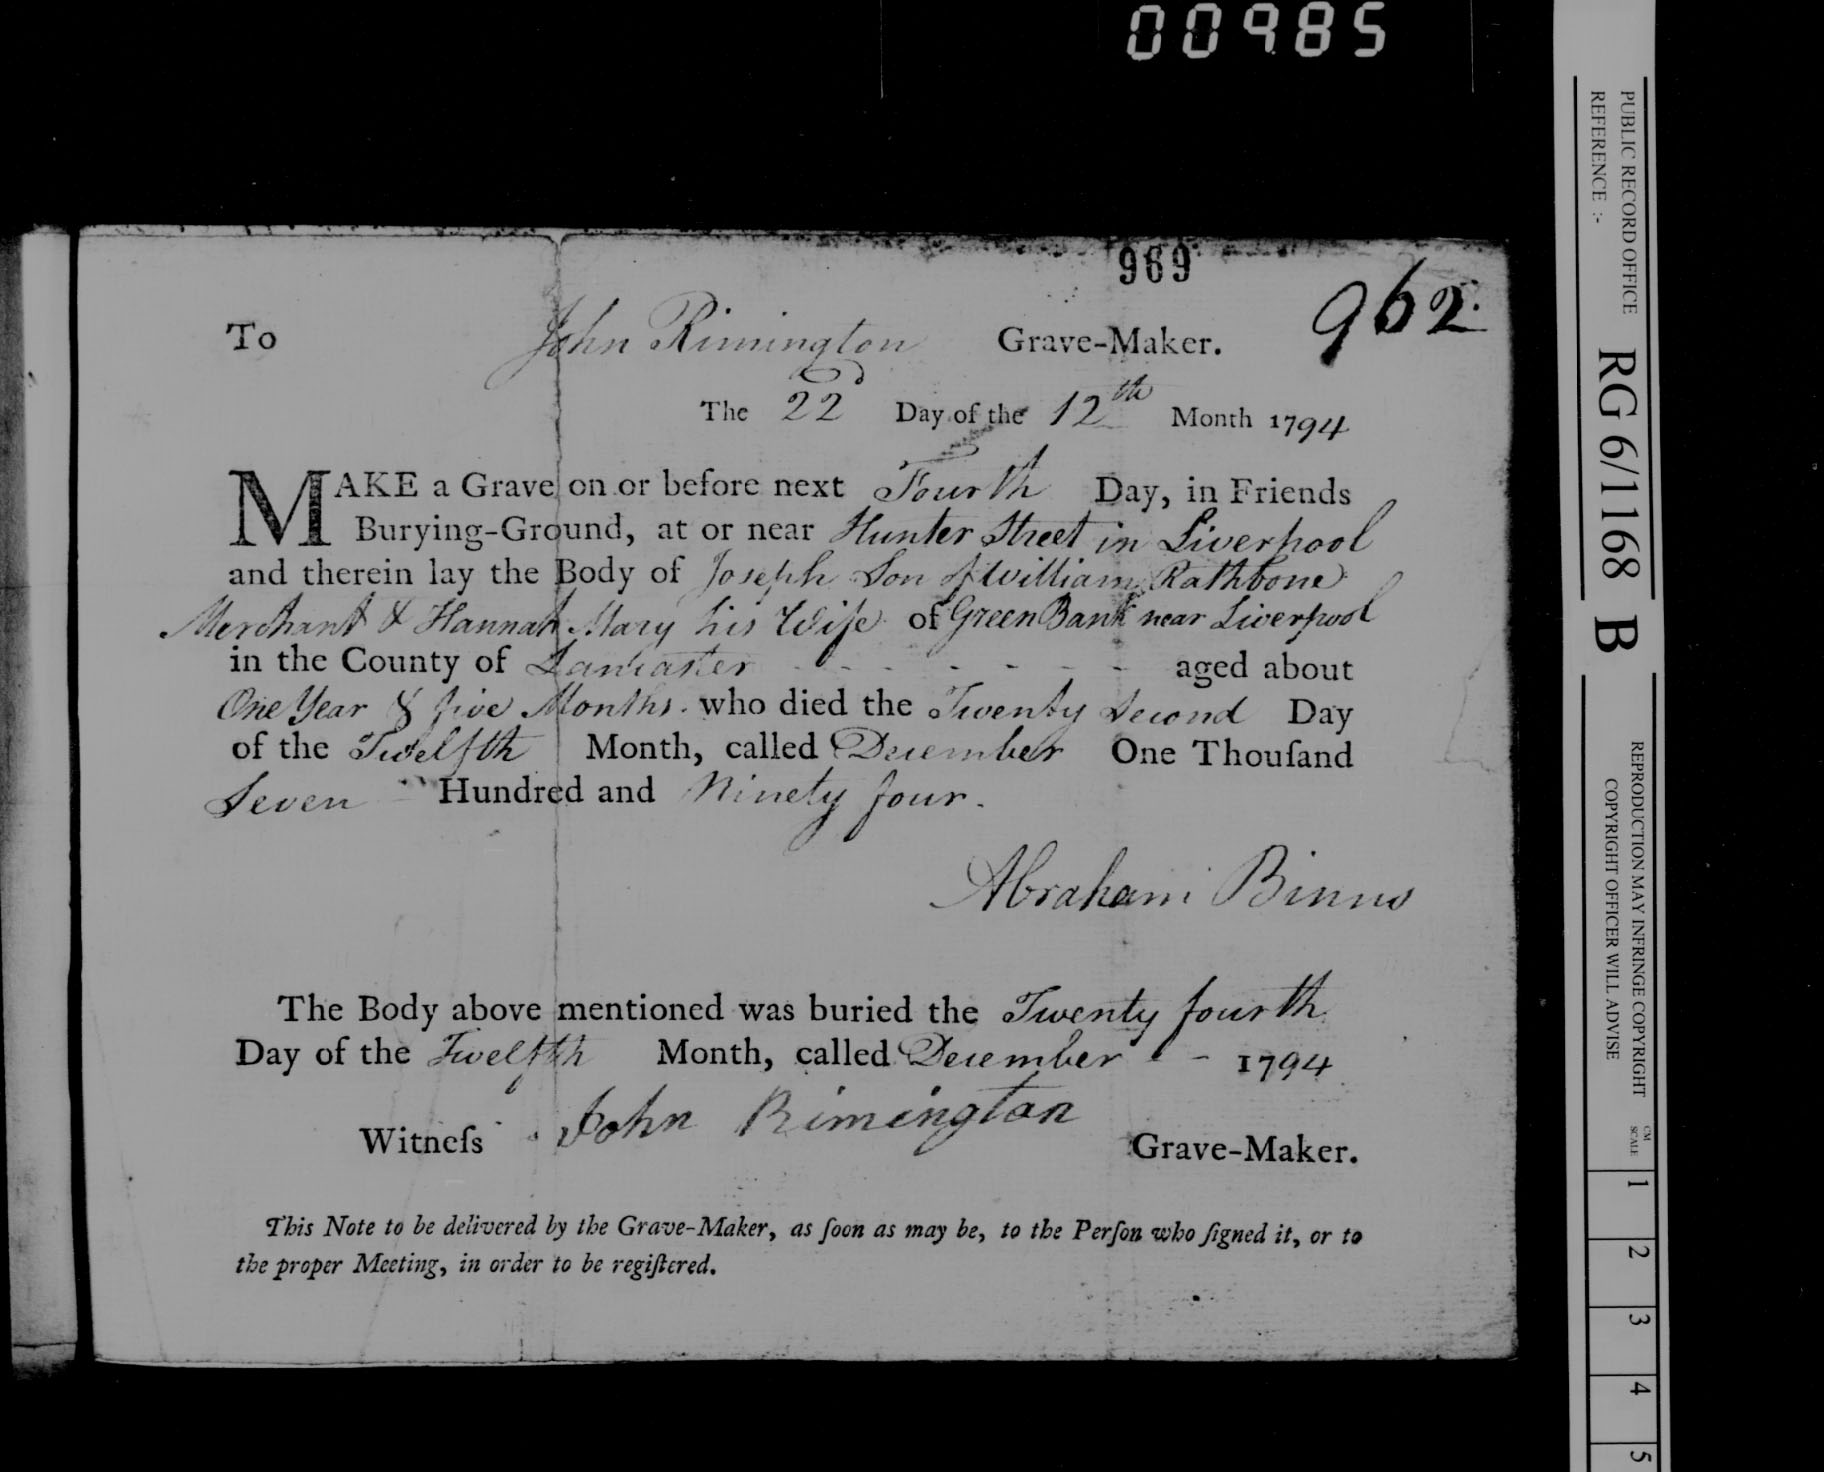 00985
969
962
To John Rimington Grave-Maker.
The 22 Day of the 12th Month 1794
MAKE a Grave on or before next Fourth Day, in Friends
Burying-Ground, at or near Hunter Street in Liverpool
and therein lay the Body of Joseph Son of William Rathbone
Merchant & Hannah Mary his Wife of Green Bank near Liverpool
in the County of Lancaster - - - - - - - aged about
One Year & five Months. who died the Twenty Second Day
of the Twelfth Month, called December One Thouſand
Seven - Hundred and Ninety four.
Abraham Binns
The Body above mentioned was buried the Twenty fourth
Day of the Twelfth Month, called December - - 1794
Witneſs John Rimington Grave-Maker.
This Note to be delivered by the Grave-Maker, as ſoon as may be, to the Perſon who ſigned it, or to
the proper Meeting, in order to be regiſtered.
PUBLIC RECORD OFFICE
REFERENCE :-
RG 6/1168 B
REPRODUCTION MAY INFRINGE COPYRIGHT
COPYRIGHT OFFICER WILL ADVISE
CM
SCALE
1
2
3
4
5